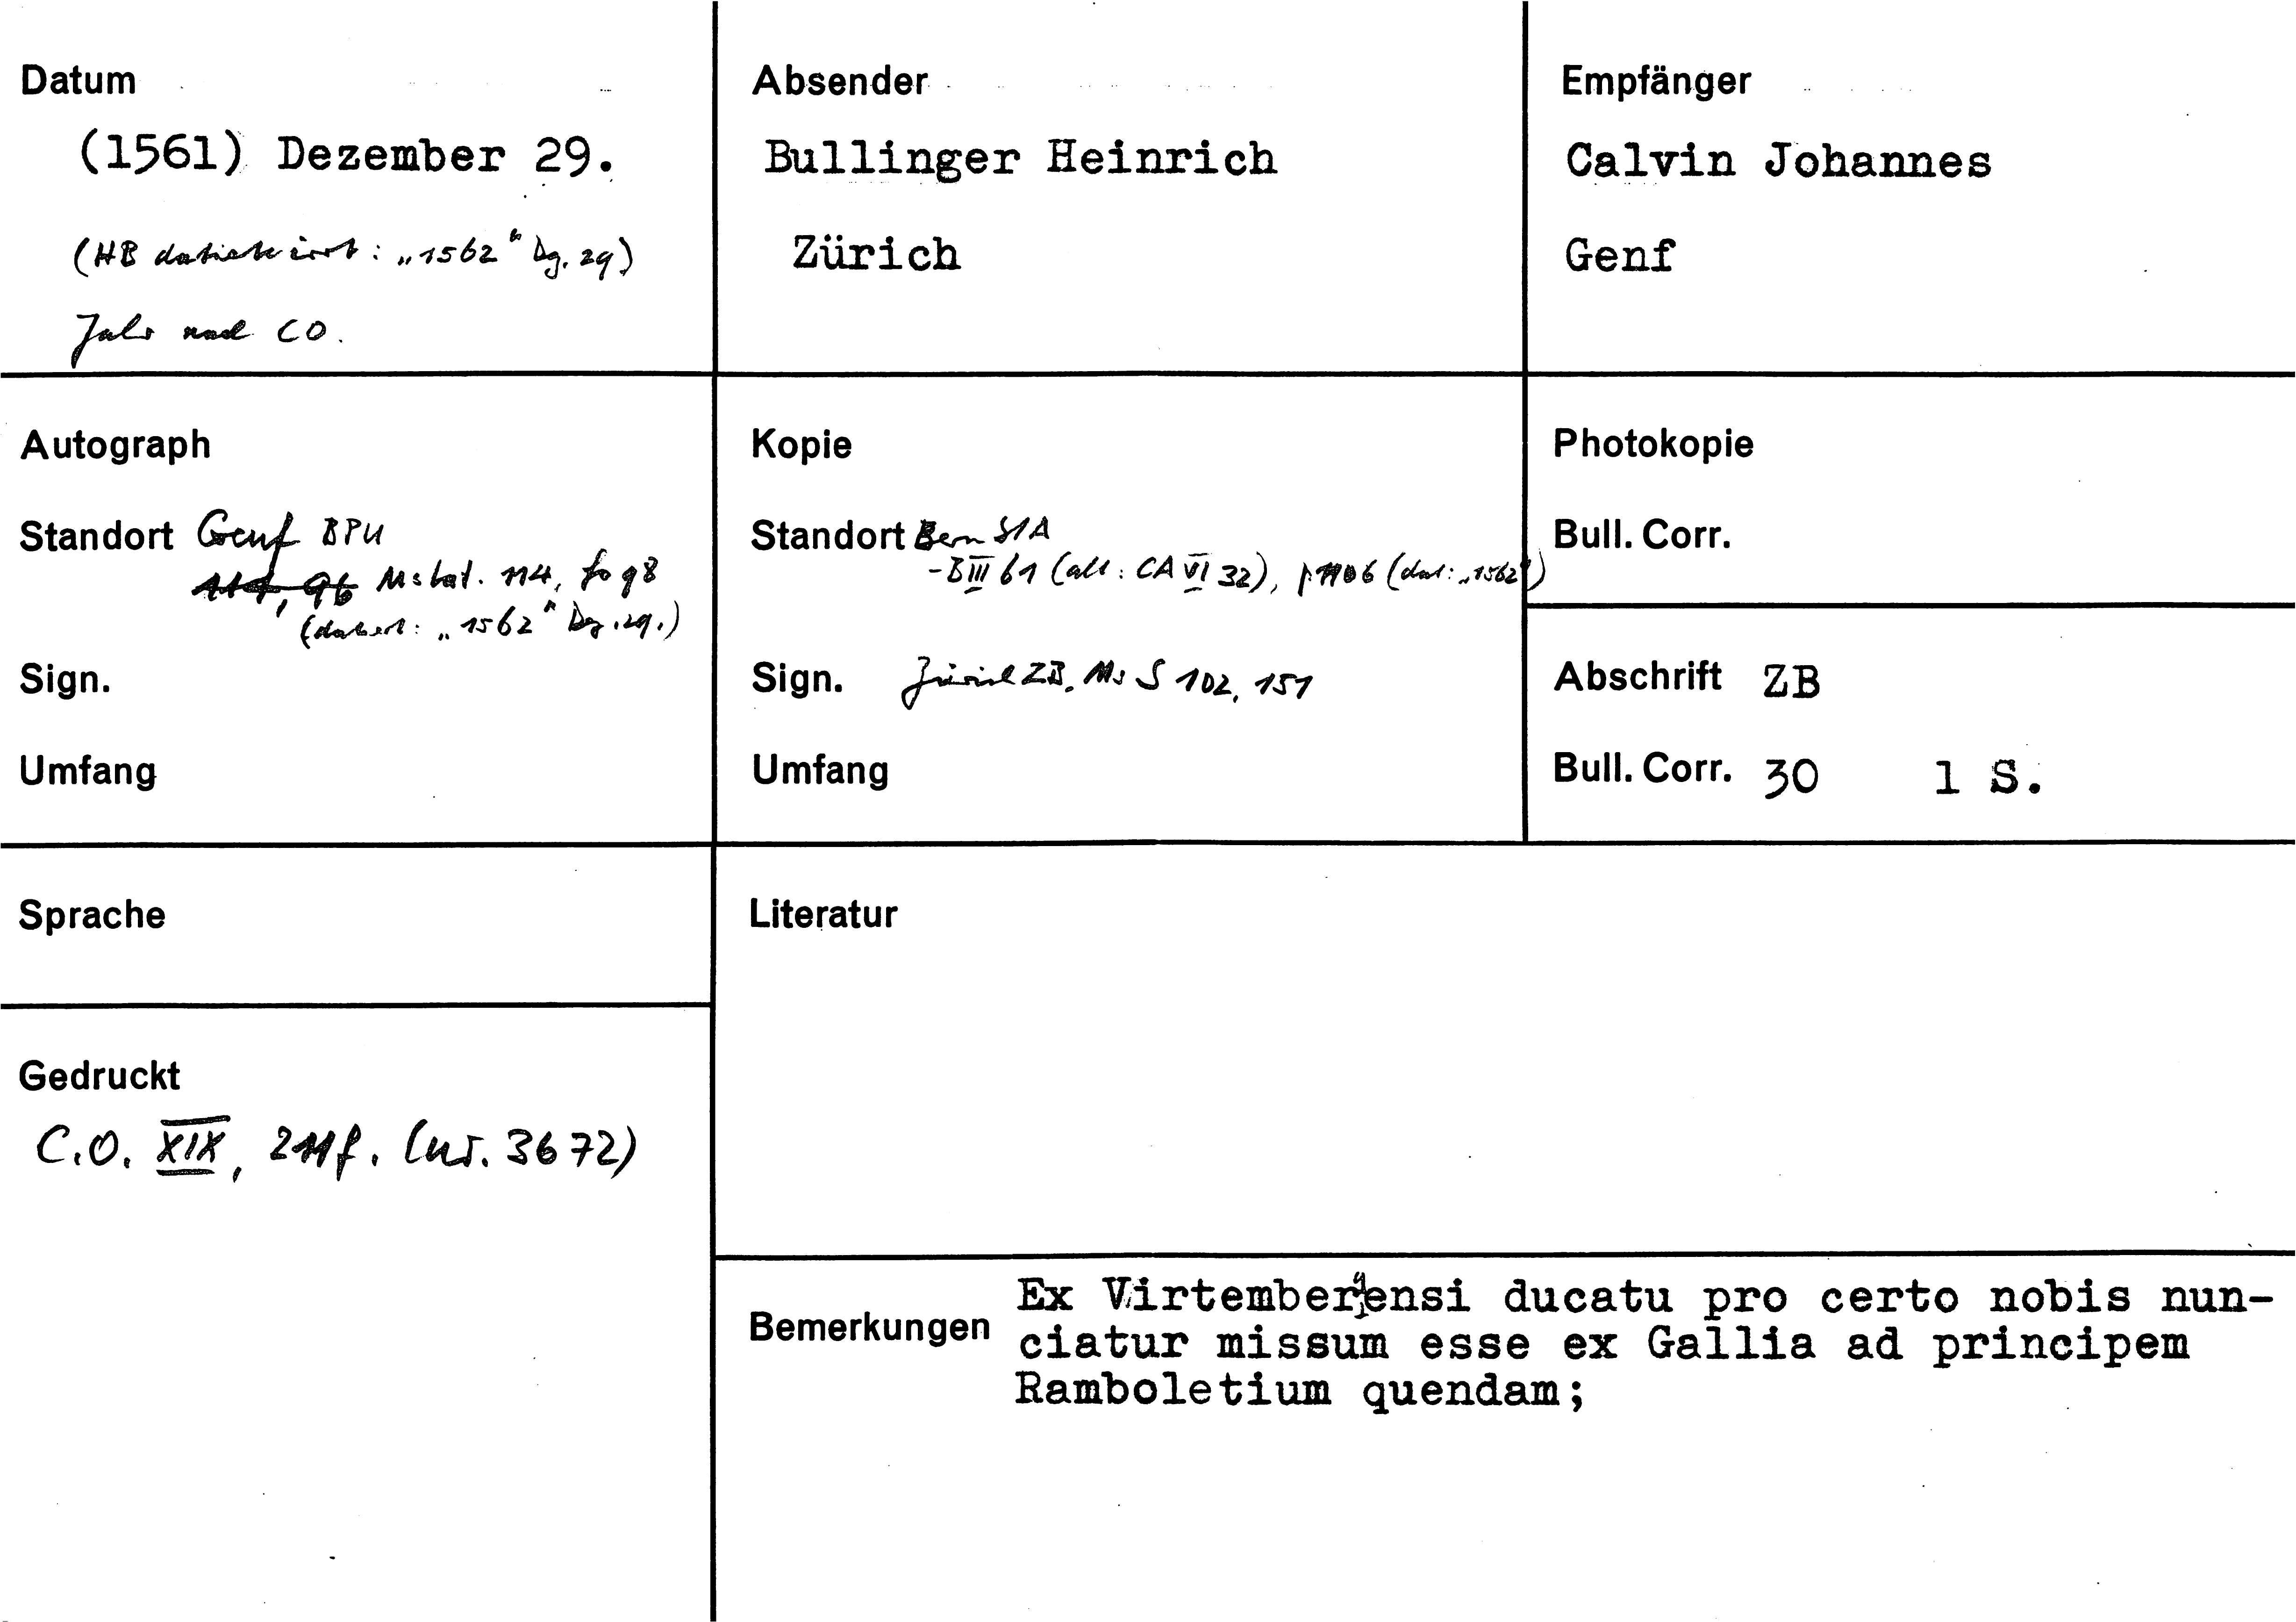 Datum
(1561) Dezember 29.
(HB datiert irrt: „1562“ Dez. 29)
Jahr nach CO.
Absender
Bullinger Heinrich
Zürich
Empfänger
Calvin Johannes
Genf
Autograph
Standort Genf BPU
114, 96 Ms lat. 114, fo 98
(datiert: „1562“ Dez. 29.)
Sign.
Umfang
Kopie
Standort Bern StA
- B III 61 (alt: CA VI 32), p 1106 (dat: „1562“)
Sign. Zürich ZB, Ms S 102, 151
Umfang
Photokopie
Bull. Corr.
Abschrift ZB
Bull. Corr. 30 1 S.
Sprache
Literatur
Gedruckt
C.O. XIX, 211f. (nr. 3672)
Bemerkungen Ex Virtembergensi ducatu pro certo nobis nun-
ciatur missum esse ex Gallia ad principem
Ramboletium quendam;